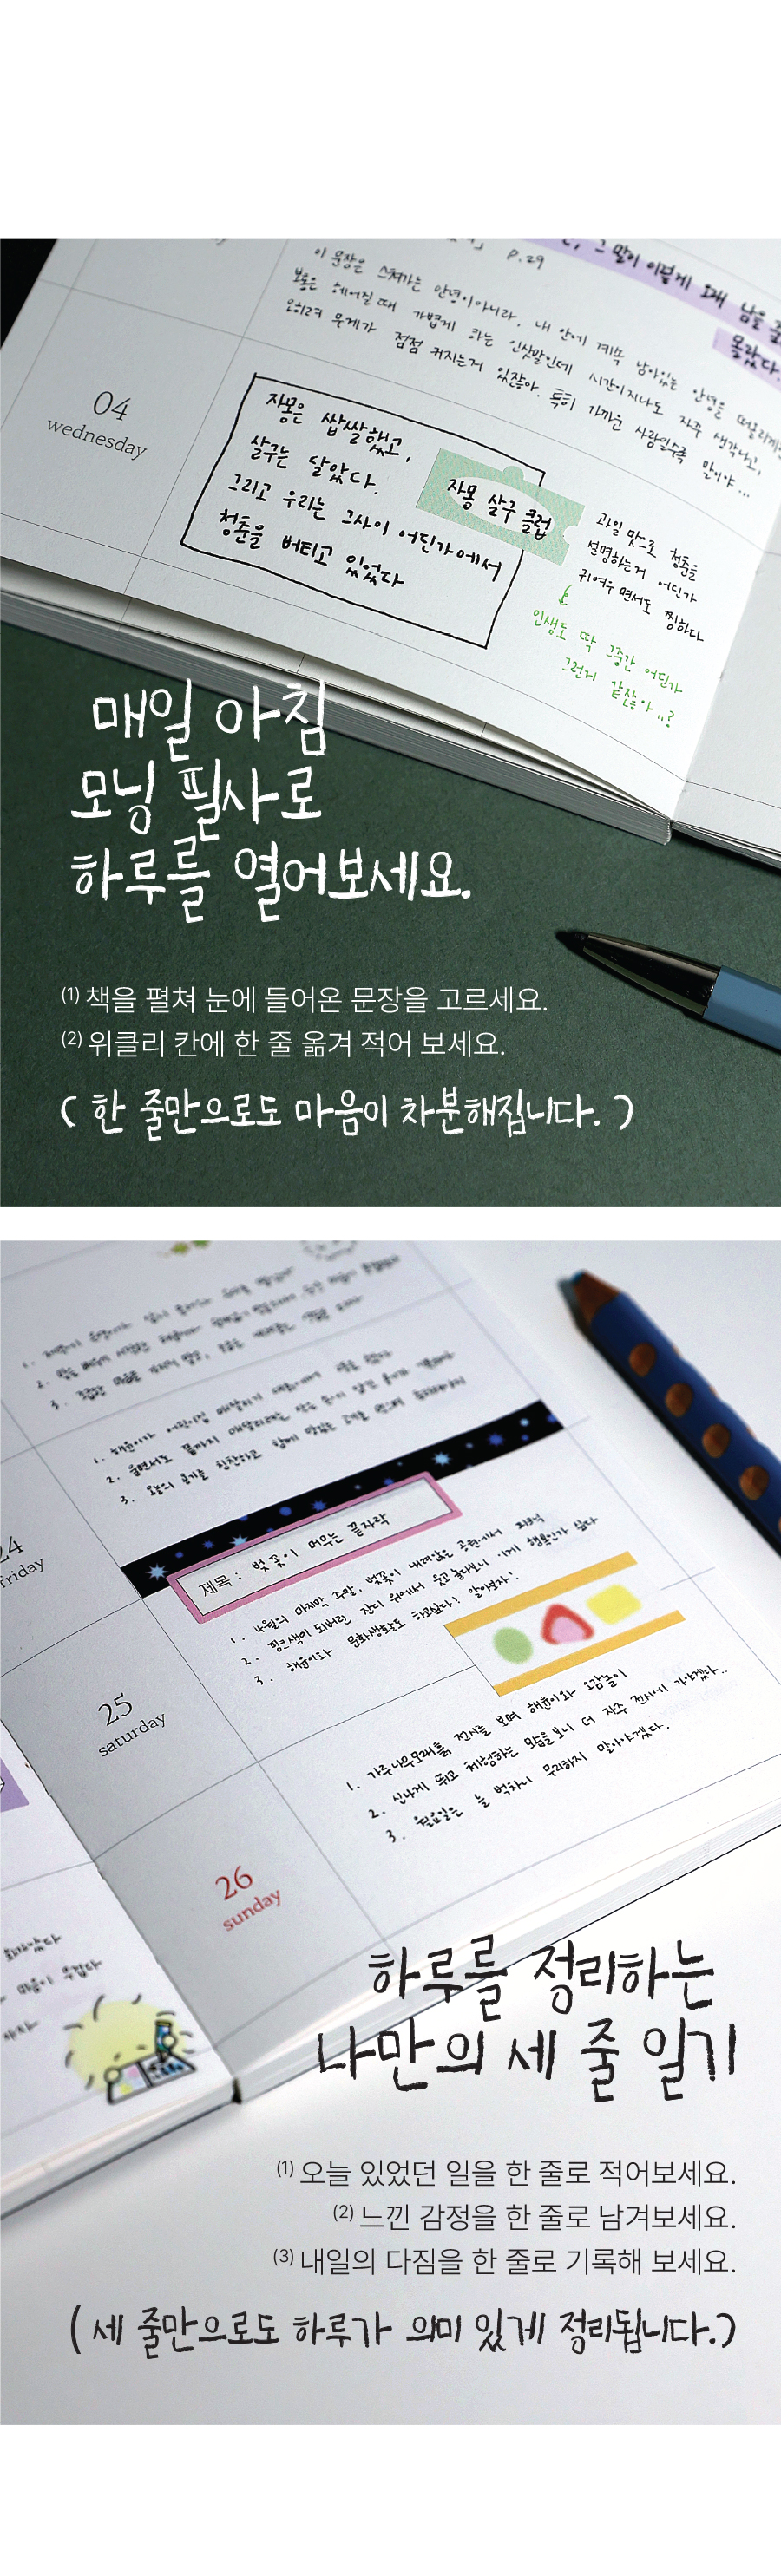 p.29
그 말이 이렇게 오래 남을 줄
몰랐다
이 문장은 스쳐가는 안녕이 아니라, 내 안에 계속 남아있는 안녕을 떠올리게
보통은 헤어질 때 가볍게 하는 인삿말인데 시간이 지나도 자주 생각나고,
오히려 무게가 점점 커지는거 있잖아. 특히 가까운 사람일수록 말이야...
04
wednesday
자몽은 쌉쌀했고,
살구는 달았다.
그리고 우리는 그사이 어딘가에서
청춘을 버티고 있었다
자몽 살구 클럽
과일 맛으로 청춘을
설명하는거 어딘가
귀여우면서도 찡하다
인생도 딱 그중간 어딘가
그런거 같잖아..?
매일 아침
모닝 필사로
하루를 열어보세요.
(1) 책을 펼쳐 눈에 들어온 문장을 고르세요.
(2) 위클리 칸에 한 줄 옮겨 적어 보세요.
( 한 줄만으로도 마음이 차분해집니다. )
24
friday
1. 해윤이가 어린이집
2. 울면서도 끝까지
3. 오늘의 용기를 칭찬하고 함께 맛있는
제목 : 벚꽃이 머무는 끝자락
1. 4월의 마지막 주말, 벚꽃이 내려앉은 공원에서 피크닉
2. 핑크색이 되버린 잔디 위에서 웃고 놀다보니 이게 행복인가 싶다
3. 해윤이와 문화생활도 하고싶다! 알아보자!
25
saturday
1. 가주나무모래흙 전시를 보며 해윤이와 오감놀이
2. 신나게 뛰고 체험하는 모습을 보니 더 자주 전시에 가야겠다..
3. 월요일은 늘 벅차니 무리하지 말아야겠다.
26
sunday
하루를 정리하는
나만의 세 줄 일기
(1) 오늘 있었던 일을 한 줄로 적어보세요.
(2) 느낀 감정을 한 줄로 남겨보세요.
(3) 내일의 다짐을 한 줄로 기록해 보세요.
( 세 줄만으로도 하루가 의미 있게 정리됩니다. )